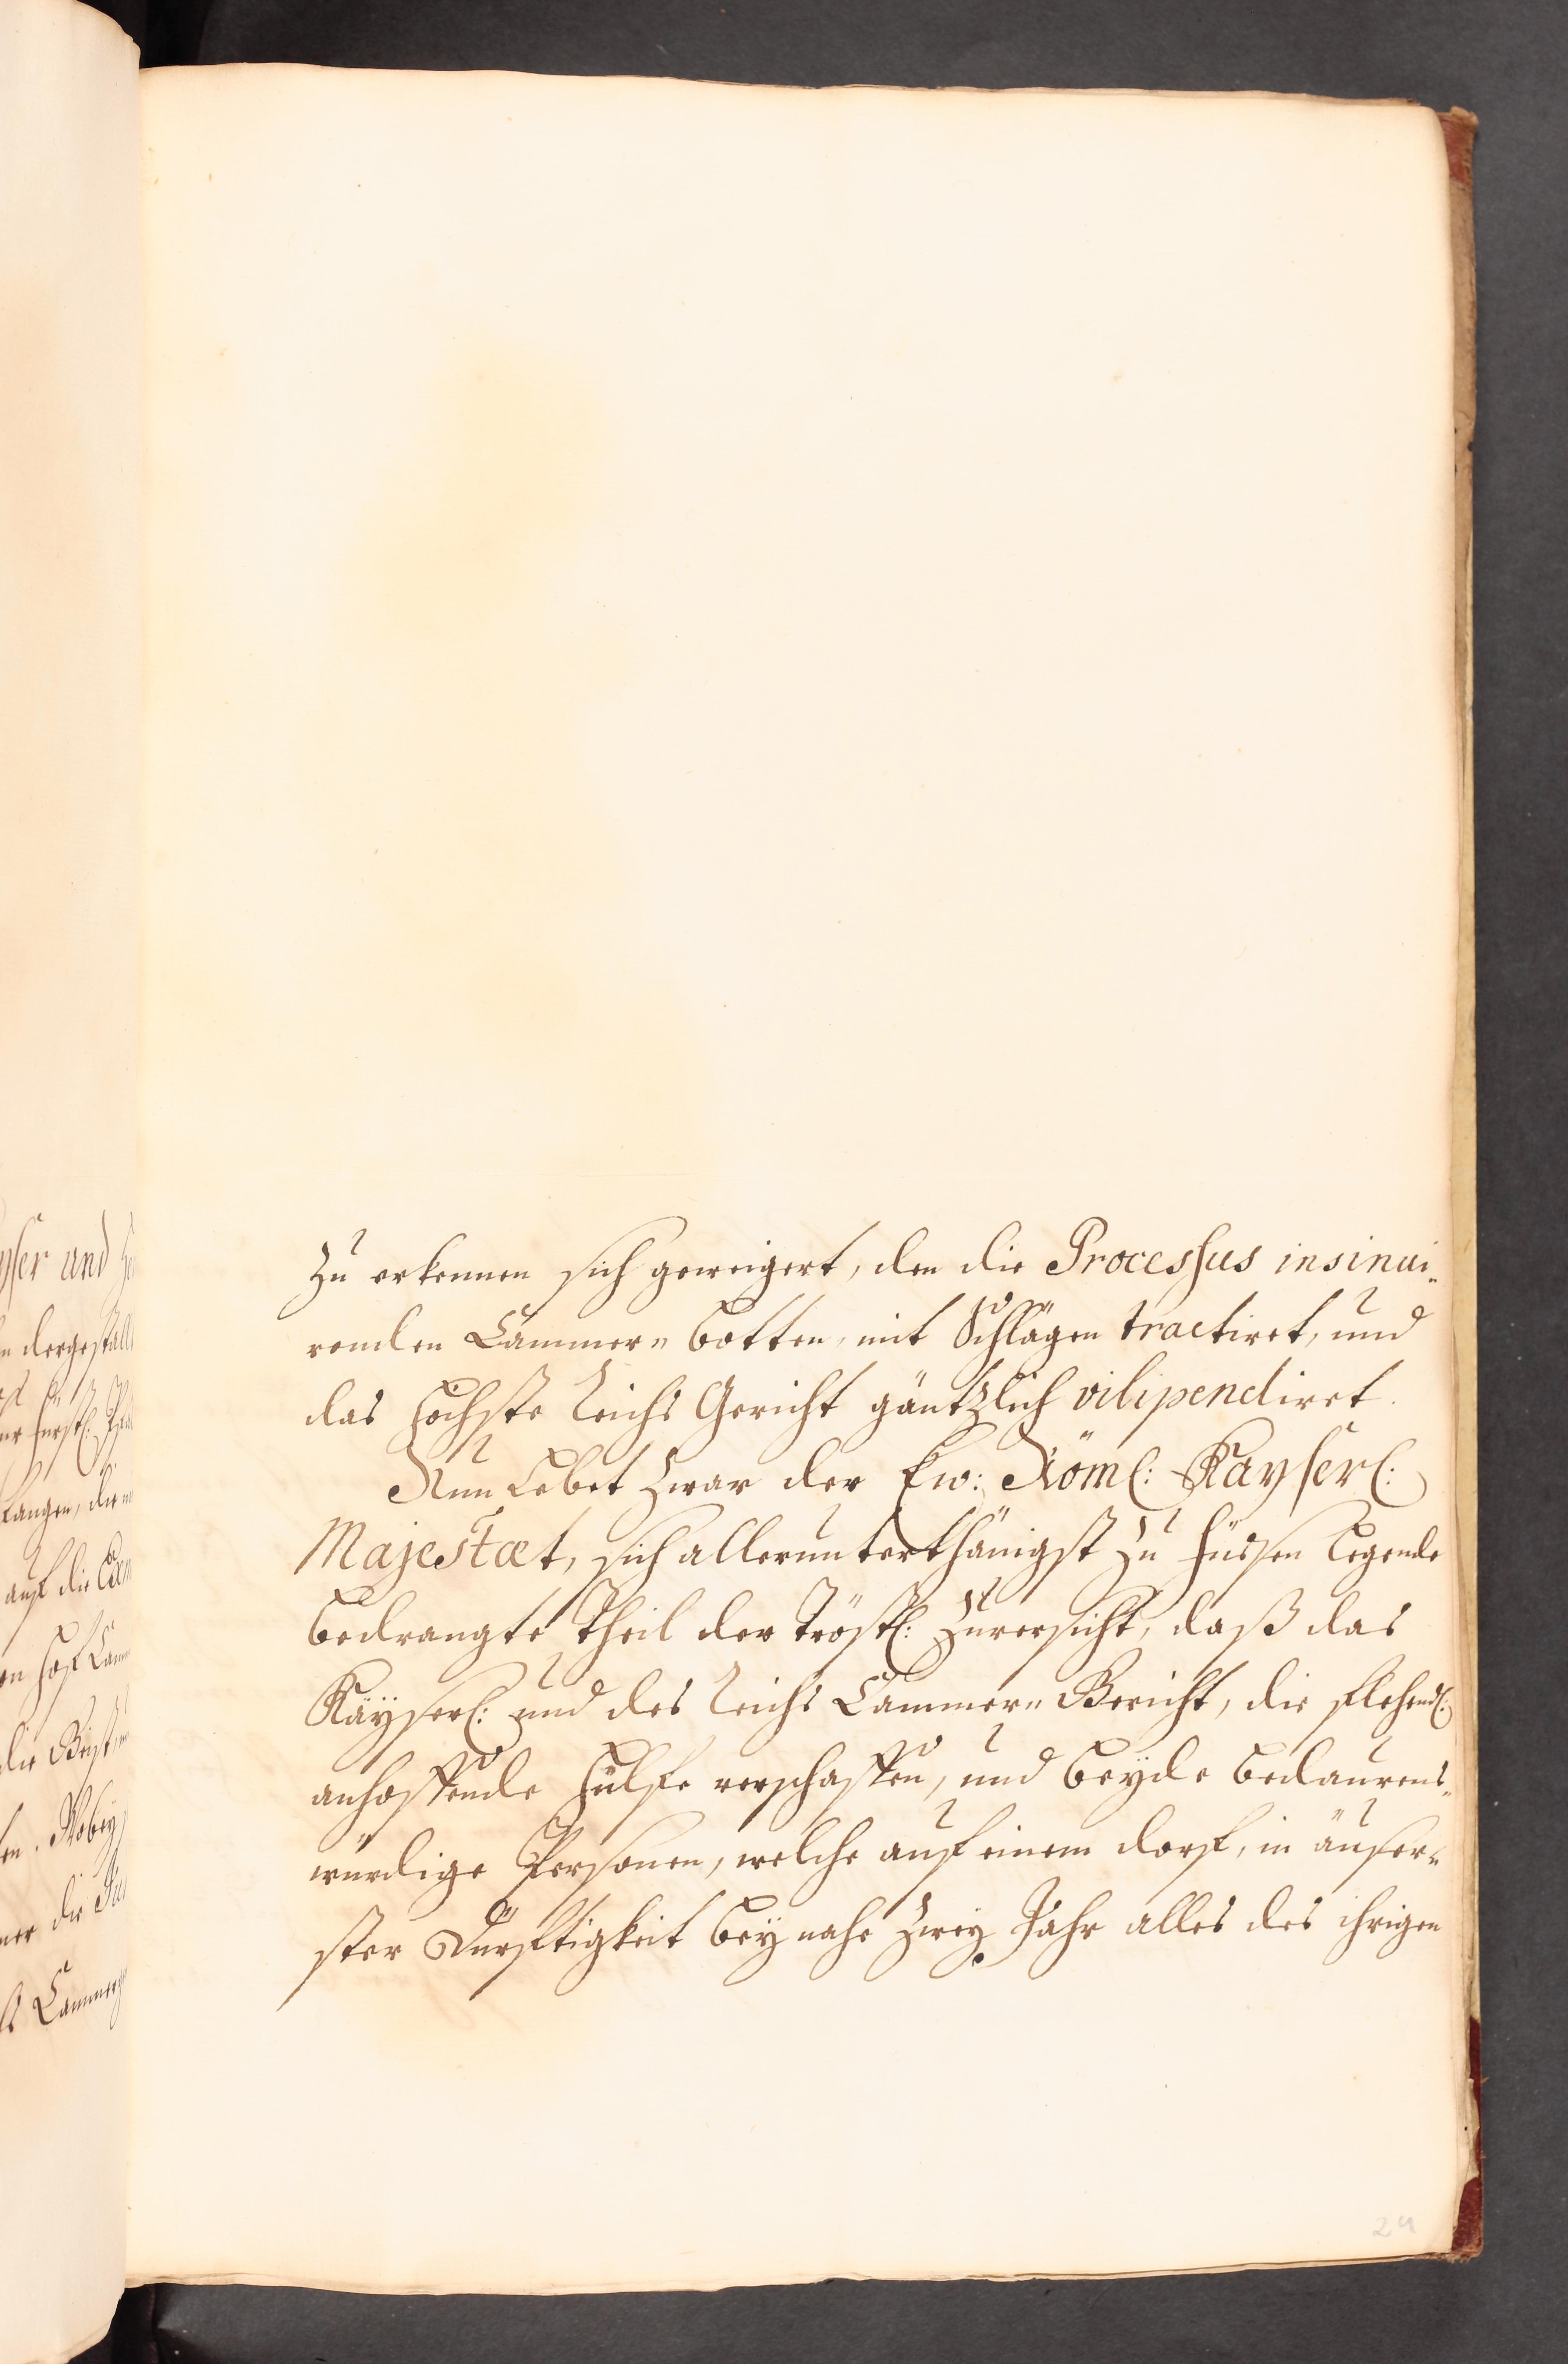 zu erkennen sich geweigert, den die Processus insinui-
renden Cammer- botten, mit Schlägen tractiret, und
das höchste Reichs Gericht gäntzlich vilipendiret.
Nun lebet zwar der Ew: Röml: Kayserl:
Majestæt, sich allerunterthänigst zu füssen legende
bedrangte Theil der tröstl: Zuversicht, daß das
Käyserl: und des Reichs Cammer- Gericht, die flehendl:
anhoffende hülfe verschaffen, und beyde bedaurens-
würdige Personen, welche auf einem dorf, in äuser-
ster Dürftigkeit bey nahe zwey Jahr alles des ihrigen
24
yser und
dergestallt
langen, die
auf die
die
Wobey
die
Cammer